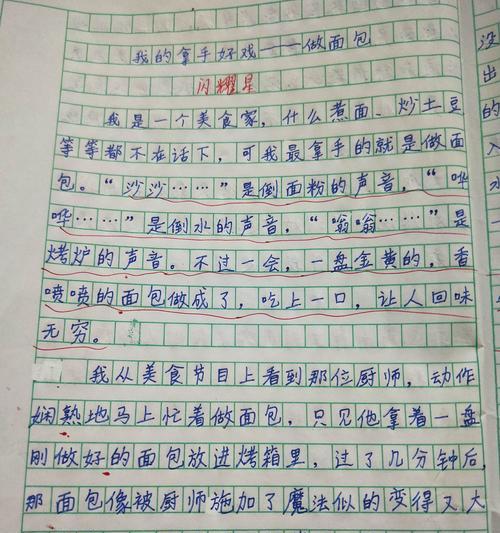 我的拿手好戏——做面包
闪耀星
我是一个美食家,什么煮面、炒土豆
等等都不在话下,可我最拿手的就是做面
包。“沙沙……”是倒面粉的声音,“哗
哗……”是倒水的声音,“嗡嗡……”是
烤炉的声音。不过一会,一盘金黄的,香
喷喷的面包做成了,吃上一口,让人回味
无穷。
我从美食节目上看到那位厨师,动作
娴熟地马上忙着做面包,只见他拿着一盘
刚做好的面包放进烤箱里,过了几分钟后,
那面包像被厨师施加了魔法似的变得又大
没
出
的
入
水